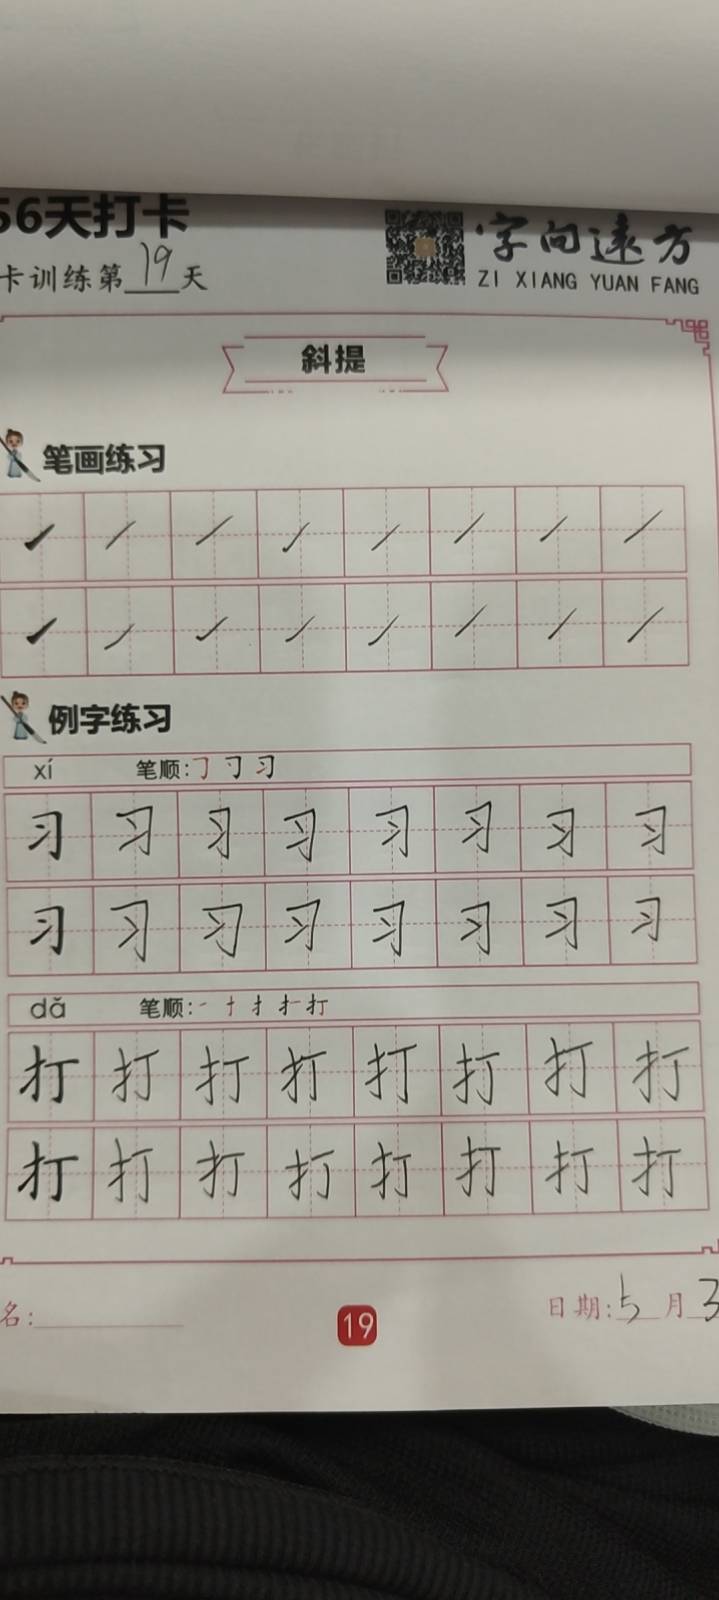 56天打卡
字向远方
卡训练第19天
ZI XIANG YUAN FANG
斜提
笔画练习
例字练习
xí 笔顺:
习 习 习 习 习 习 习 习
习 习 习 习 习 习 习 习
dǎ 笔顺:一 十 扌 扩 打
打 打 打 打 打 打 打 打
打 打 打 打 打 打 打 打
名:
19
日期:5月3